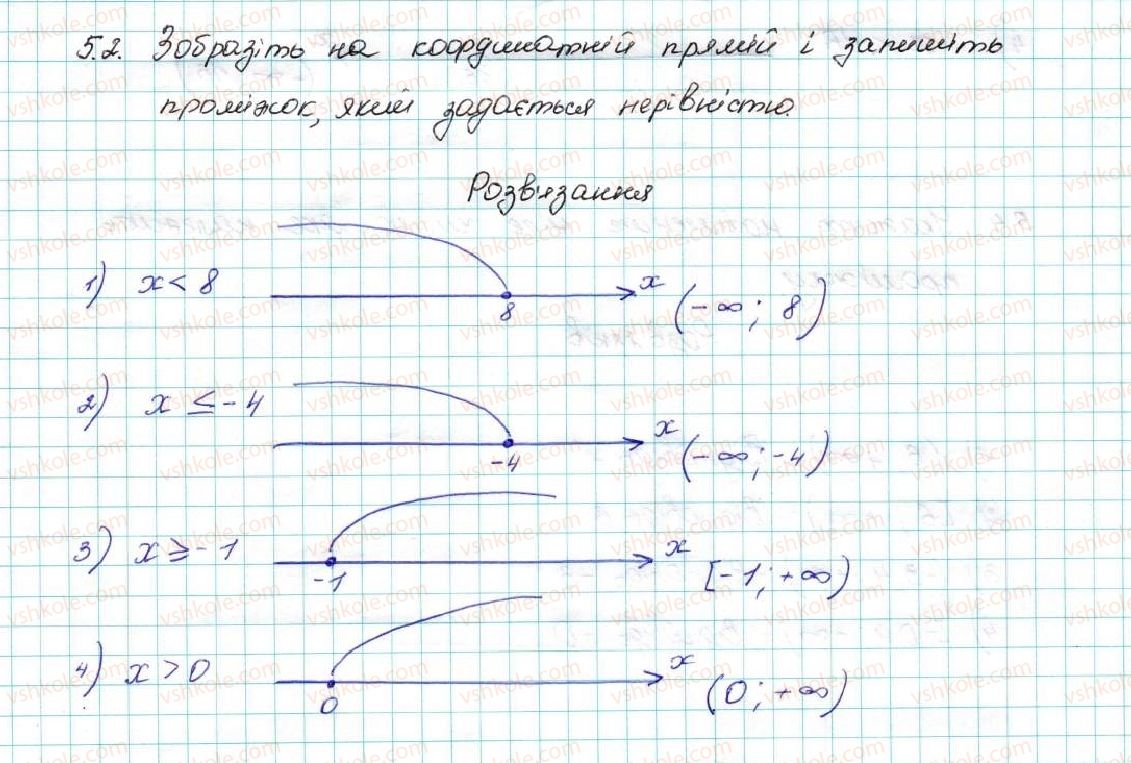 5.2. Зобразіть на координатній прямій і запишіть
проміжок, який задається нерівністю.
Розв'язання
1) x < 8
8
x
(-∞; 8)
2) x ≤ -4
-4
x
(-∞; -4)
3) x ≥ -1
-1
x
[-1; +∞)
4) x > 0
0
x
(0; +∞)